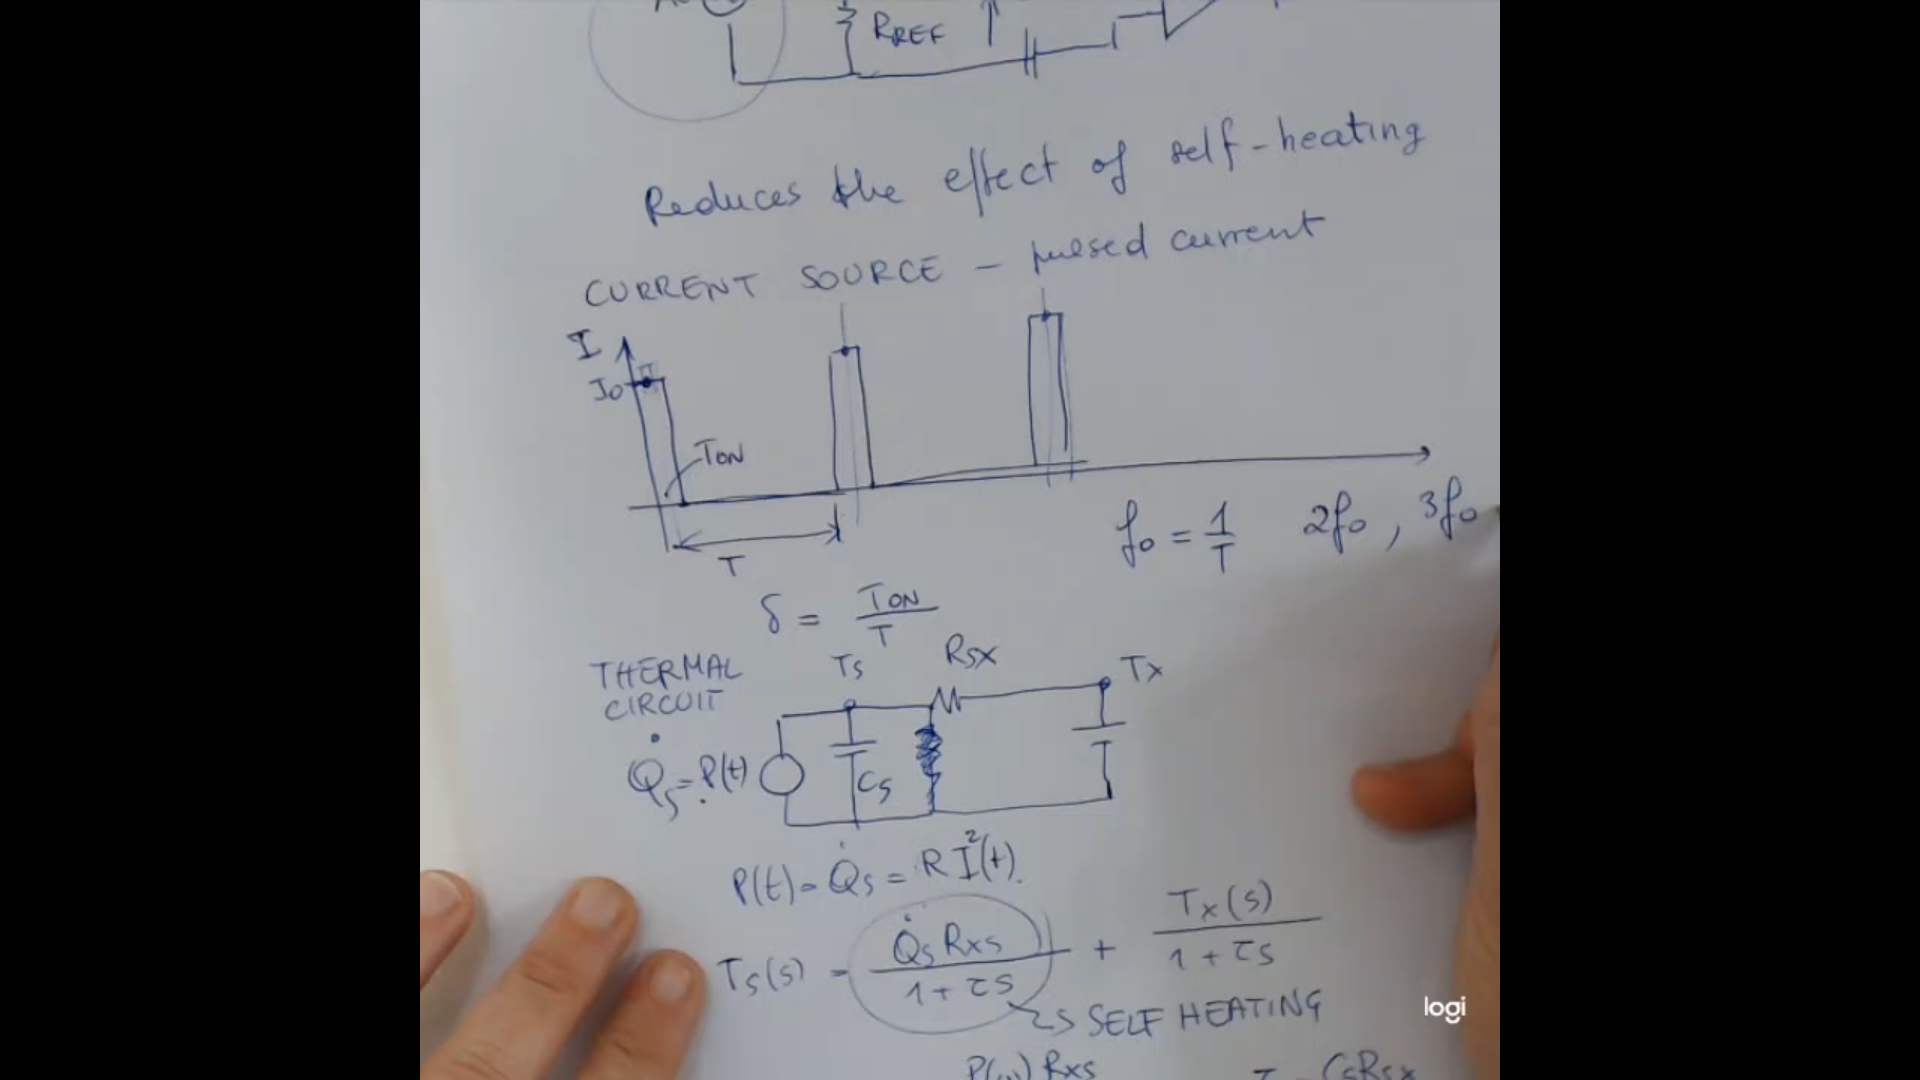 RREF
Reduces the effect of self-heating
CURRENT SOURCE – pulsed current
I
Io
TON
T
fo = 1/T 2fo, 3fo
δ = TON/T
THERMAL CIRCUIT
Ts
Rsx
Tx
Q̇s = P(t)
Cs
P(t) = Q̇s = R I²(t).
Ts(s) = Q̇s Rxs / 1+τs + Tx(s) / 1+τs
SELF HEATING
Rxs
CsRsx
logi